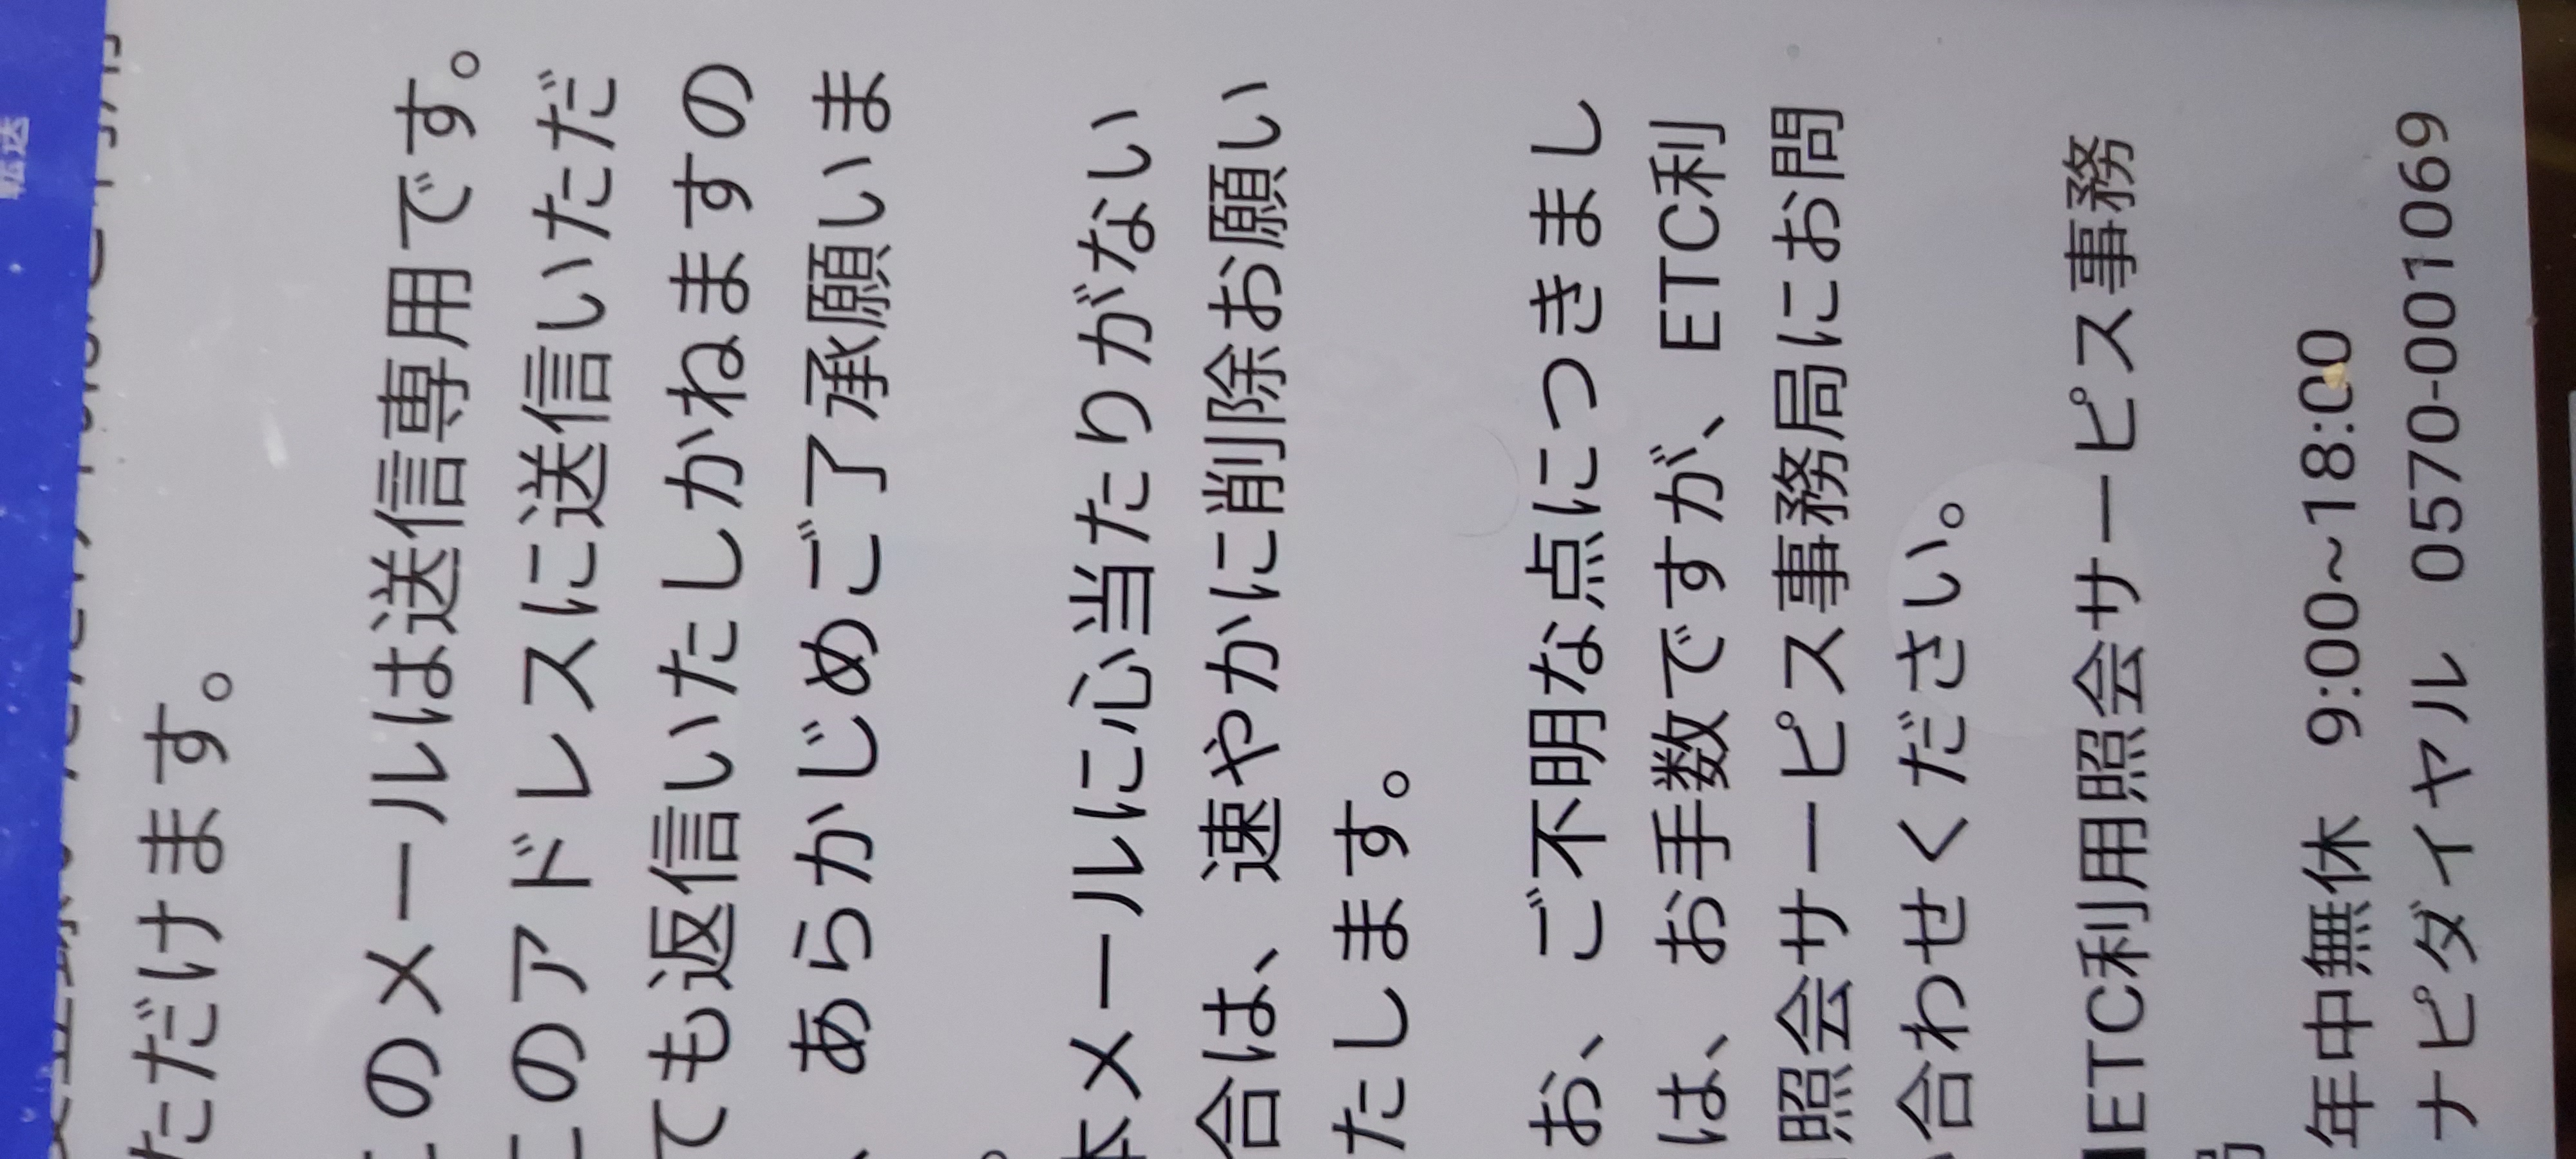 転送
ただけます。
このメールは送信専用です。
このアドレスに送信いただ
ても返信いたしかねますの
、あらかじめご了承願いま
。
本メールに心当たりがない
合は、速やかに削除お願い
たします。
お、ご不明な点につきまし
は、お手数ですが、ETC利
照会サーピス事務局にお問
合わせください。
■ETC利用照会サーピス事務
年中無休 9:00~18:00
ナピダイヤル 0570-001069